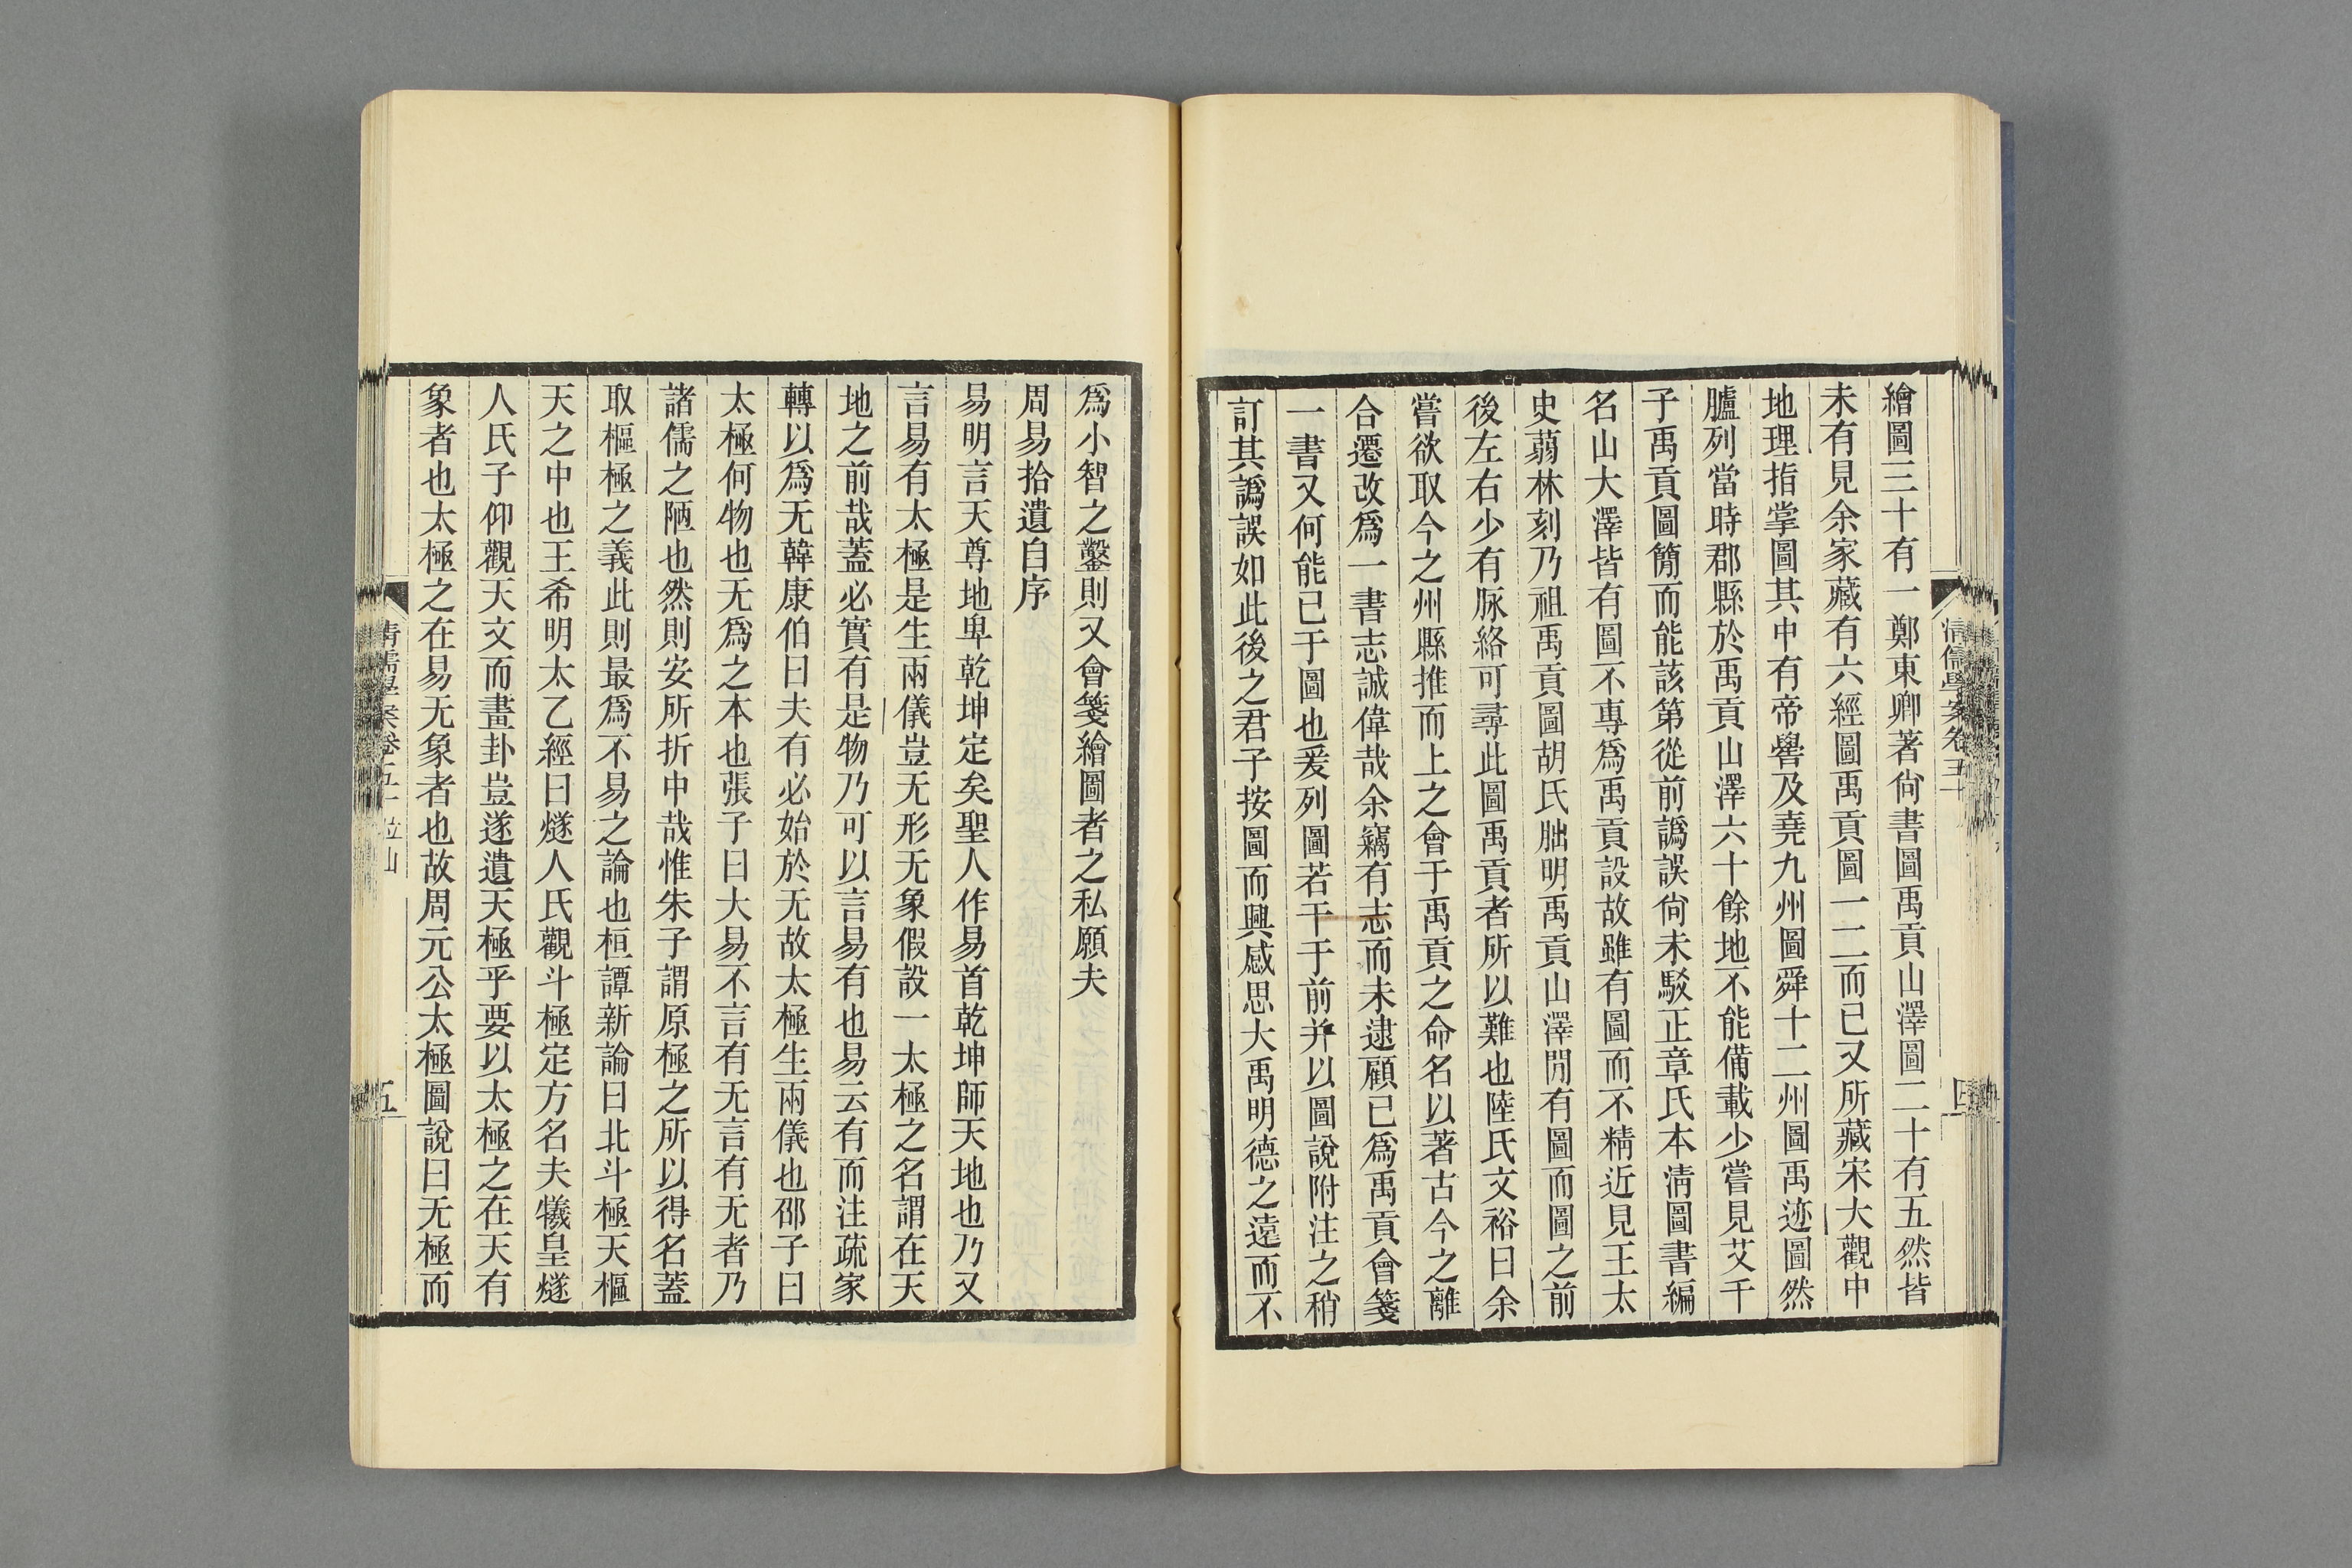 繪圖三十有一鄭東卿著尙書圖禹貢山澤圖二十有五然皆
未有見余家藏有六經圖禹貢圖一二而已又所藏宋大觀中
地理指掌圖其中有帝嚳及堯九州圖舜十二州圖禹迹圖然
臚列當時郡縣於禹貢山澤六十餘地不能備載少嘗見艾千
子禹貢圖簡而能該第從前譌誤尙未駁正章氏本淸圖書編
名山大澤皆有圖不專爲禹貢設故雖有圖而不精近見王太
史蒻林刻乃祖禹貢圖胡氏朏明禹貢山澤閒有圖而圖之前
後左右少有脉絡可尋此圖禹貢者所以難也陸氏文裕曰余
嘗欲取今之州縣推而上之會于禹貢之命名以著古今之離
合遷改爲一書志誠偉哉余竊有志而未逮顧已爲禹貢會箋
一書又何能已于圖也爰列圖若干于前并以圖說附注之稍
訂其譌誤如此後之君子按圖而興感思大禹明德之遠而不
清儒學案卷五十
四
爲小智之鑿則又會箋繪圖者之私願夫
周易拾遺自序
易明言天尊地卑乾坤定矣聖人作易首乾坤師天地也乃又
言易有太極是生兩儀豈无形无象假設一太極之名謂在天
地之前哉蓋必實有是物乃可以言易有也易云有而注疏家
轉以爲无韓康伯曰夫有必始於无故太極生兩儀也邵子曰
太極何物也无爲之本也張子曰大易不言有无言有无者乃
諸儒之陋也然則安所折中哉惟朱子謂原極之所以得名蓋
取樞極之義此則最爲不易之論也桓譚新論曰北斗極天樞
天之中也王希明太乙經曰燧人氏觀斗極定方名夫犧皇燧
人氏子仰觀天文而畫卦豈遂遺天極乎要以太極之在天有
象者也太極之在易无象者也故周元公太極圖說曰无極而
清儒學案卷五十 位山
五